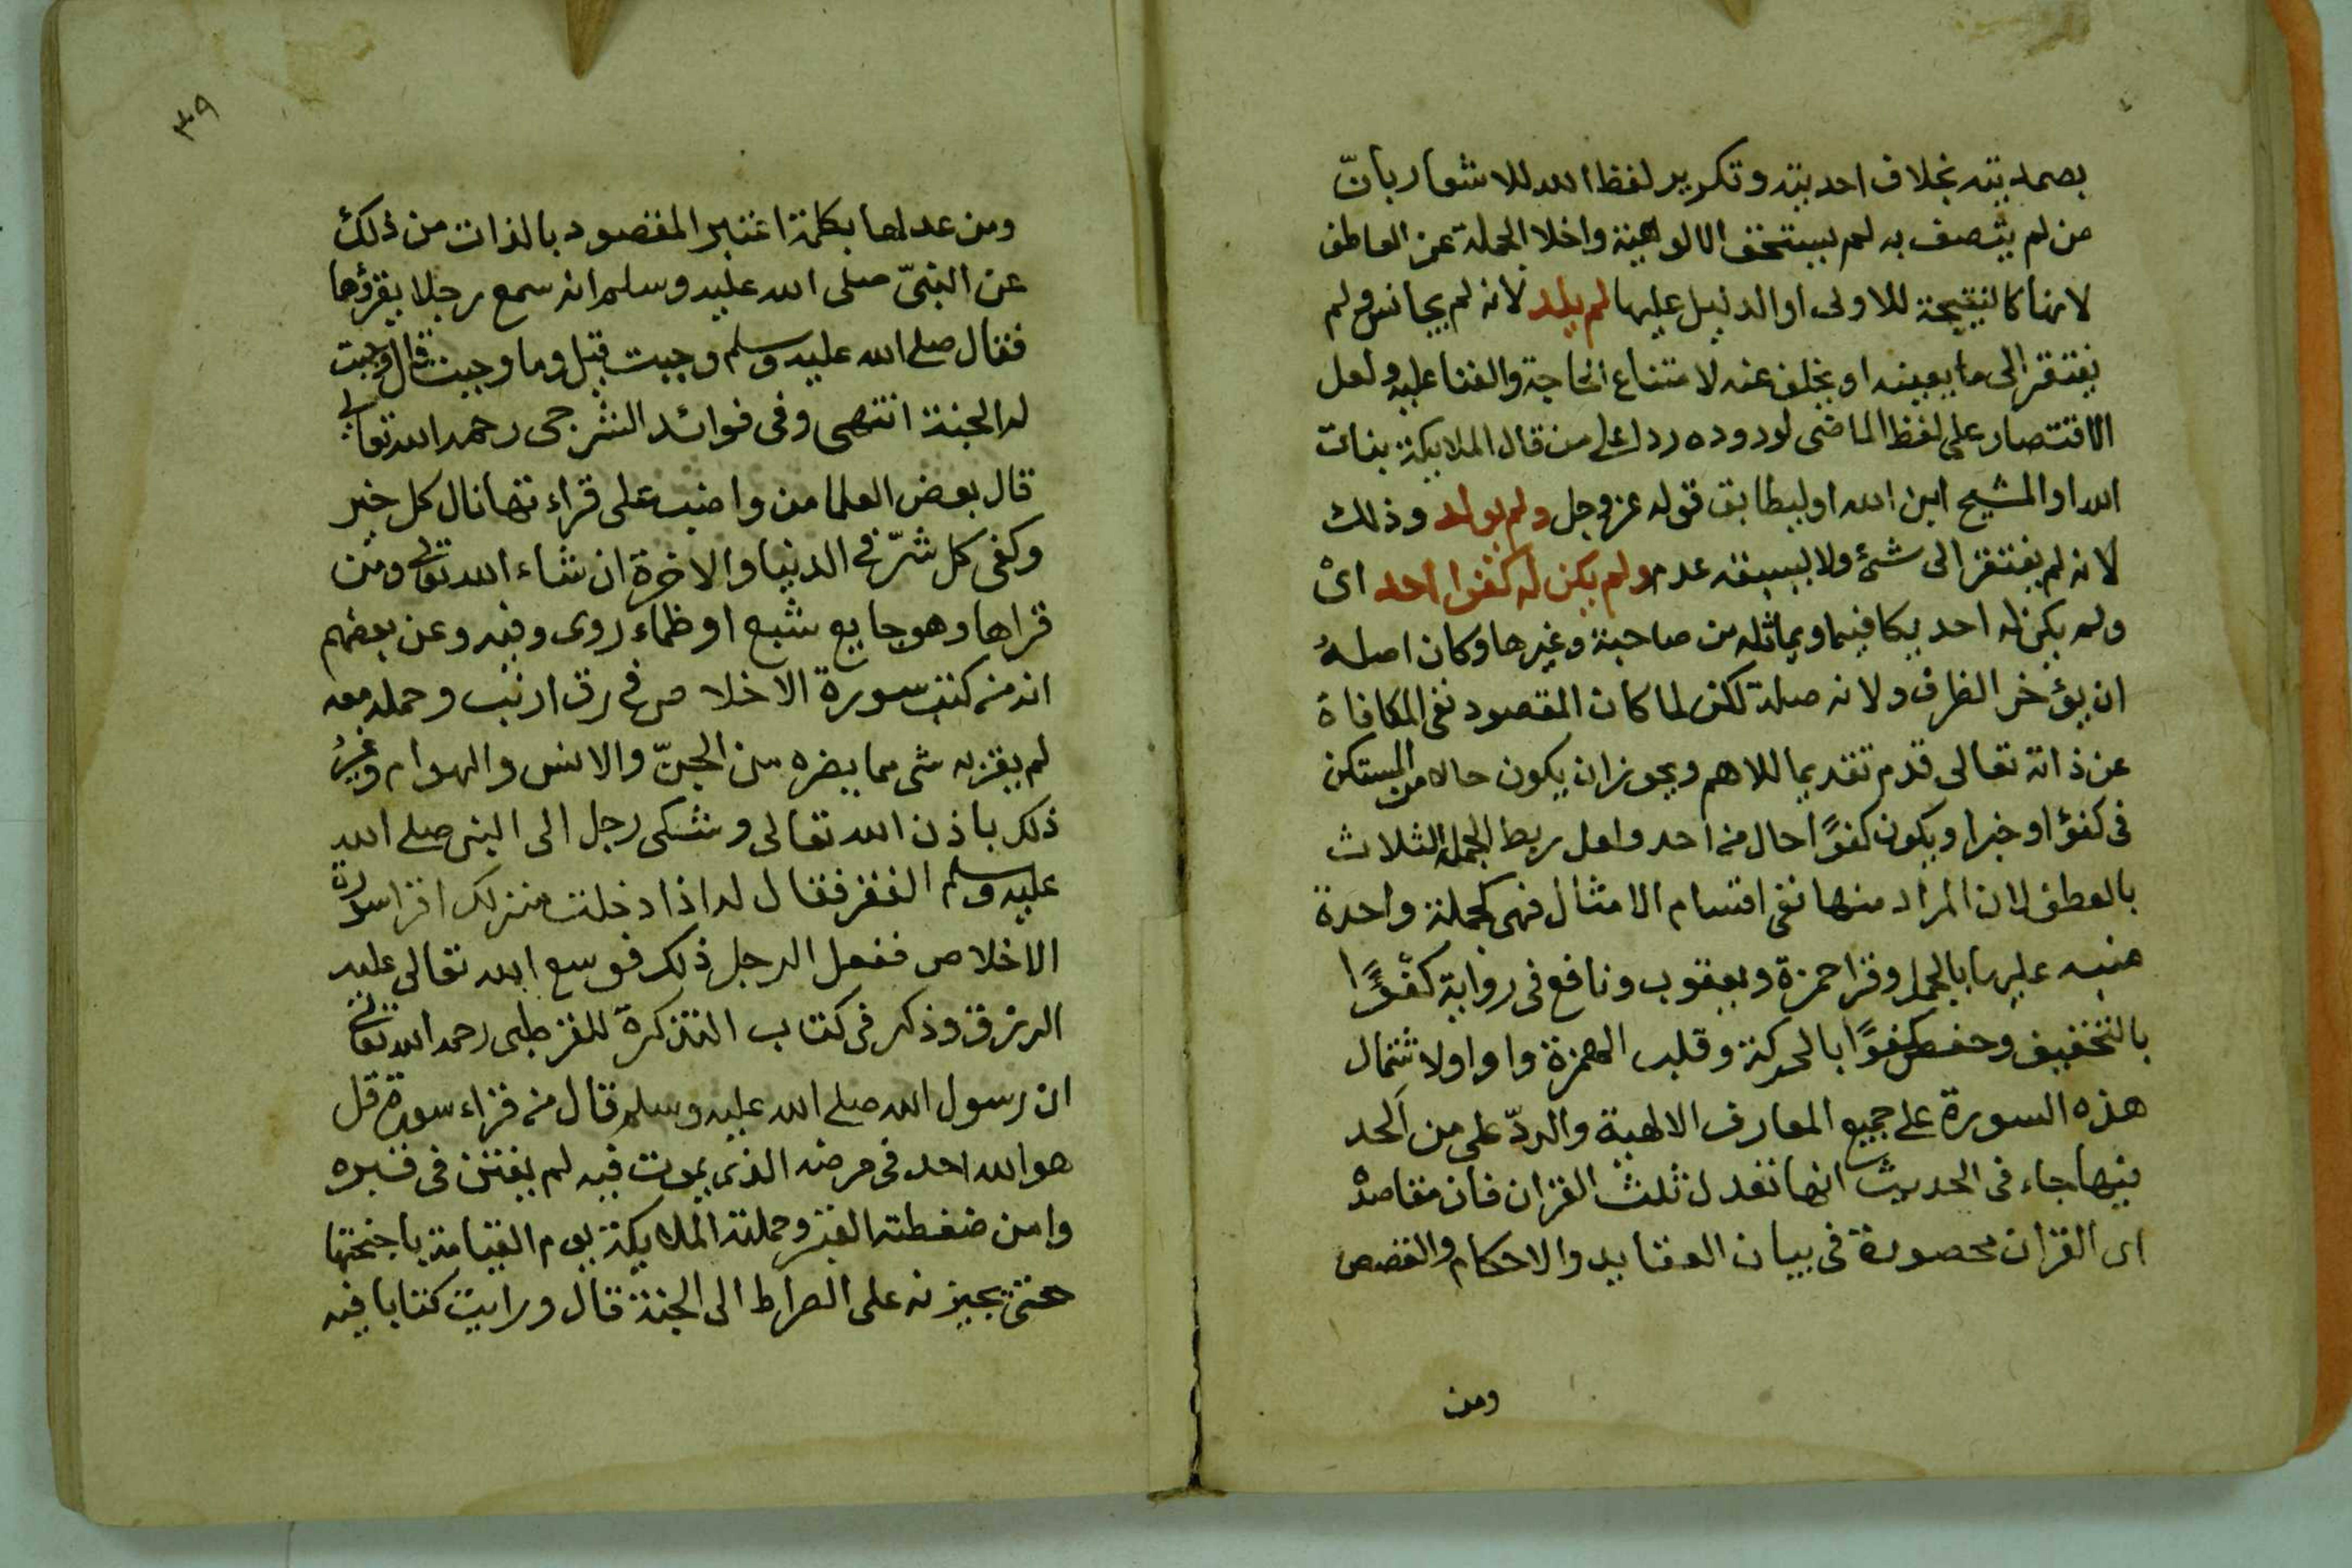 بصمديته بخلاف احديته وتكرير لفظ الله للاشعار بانّ
من لم يتصف به لم يستحق الالوهية واخلا الجملة عن العاطف
لانها كالنتيجة للاولى او الدليل عليها لم يلد لانه لم يجانس ولم
يفتقر الى ما يعينه او يخلف عنه لامتناع الحاجة والفنا عليه ولعل
الاقتصار على لفظ الماضى لوروده ردا على من قال الملايكة بنات
الله او المشيح ابن الله او ليطابق قوله عزوجل ولم يولد وذلك
لانه لم يفتقر الى شئ ولا يسبقه عدم ولم يكن له كفوا احد اى
ولم يكن له احد يكافيما ويماثله من صاحبة وغيرها وكان اصله
ان يؤخر الظرف ولانه صلة لكن لما كان المقصود نفى المكافاة
عن ذاته تعالى قدم تقديما للاهم ويجوز ان يكون حالا من المستكن
فى كفؤ او خبرا ويكون كفوًا حال من احد ولعل ربط الجمل الثلاث
بالعطف لان المراد منها نفى اقسام الامثال فهى كجملة واحدة
منبه عليها بالجمل وقرا حمزة ويعقوب ونافع فى رواية كفْوًا
بالتخفيف وحفص كفوًا بالحركة وقلب الهمزة واوا ولاشتمال
هذه السورة على جميع المعارف الالهية والردّ على من الحد
فيها جاء فى الحديث انها تعدل ثلث القران فان مقاصده
اى القران محصورة فى بيان العقايد والاحكام والقصص
ومن
٣٩
ومن عدلها بكلمة اعتبر المقصود بالذات من ذلك
عن النبىّ صلى الله عليه وسلم انه سمع رجلا يقرؤها
فقال صلى الله عليه وسلم وجبت قيل وما وجبت قال وجبت
له الجنة انتهى وفى فوائد الشرجى رحمه الله تعالى
قال بعض العلما من واضب على قراءتها نال كل خير
وكفى كل شرّ فى الدنيا والاخرة ان شاء الله تعالى ومن
قراها وهو جايع شبع او ظماء روى وفيه وعن بعضهم
انه من كتب سورة الاخلاص فى رق ارنب وحمله معه
لم يقربه شى مما يضره من الجنّ والانس والهوام وغيرُ
ذلك باذن الله تعالى وشكى رجل الى النبى صلى الله
عليه وسلم الفقر فقال له اذا دخلت منزلك اقرا سورة
الاخلاص ففعل الرجل ذلك فوسع الله تعالى عليه
الرزق وذكر فى كتاب التذكرة للقرطبى رحمه الله تعالى
ان رسول الله صلى الله عليه وسلم قال من قراء سورة قل
هو الله احد فى مرضه الذى يموت فيه لم يفتن فى قبره
وامن ضغطته القبر وحملته الملايكة يوم القيامة باجنحتها
حتى تجيزنه على الصراط الى الجنة قال ورايت كتابا فيه